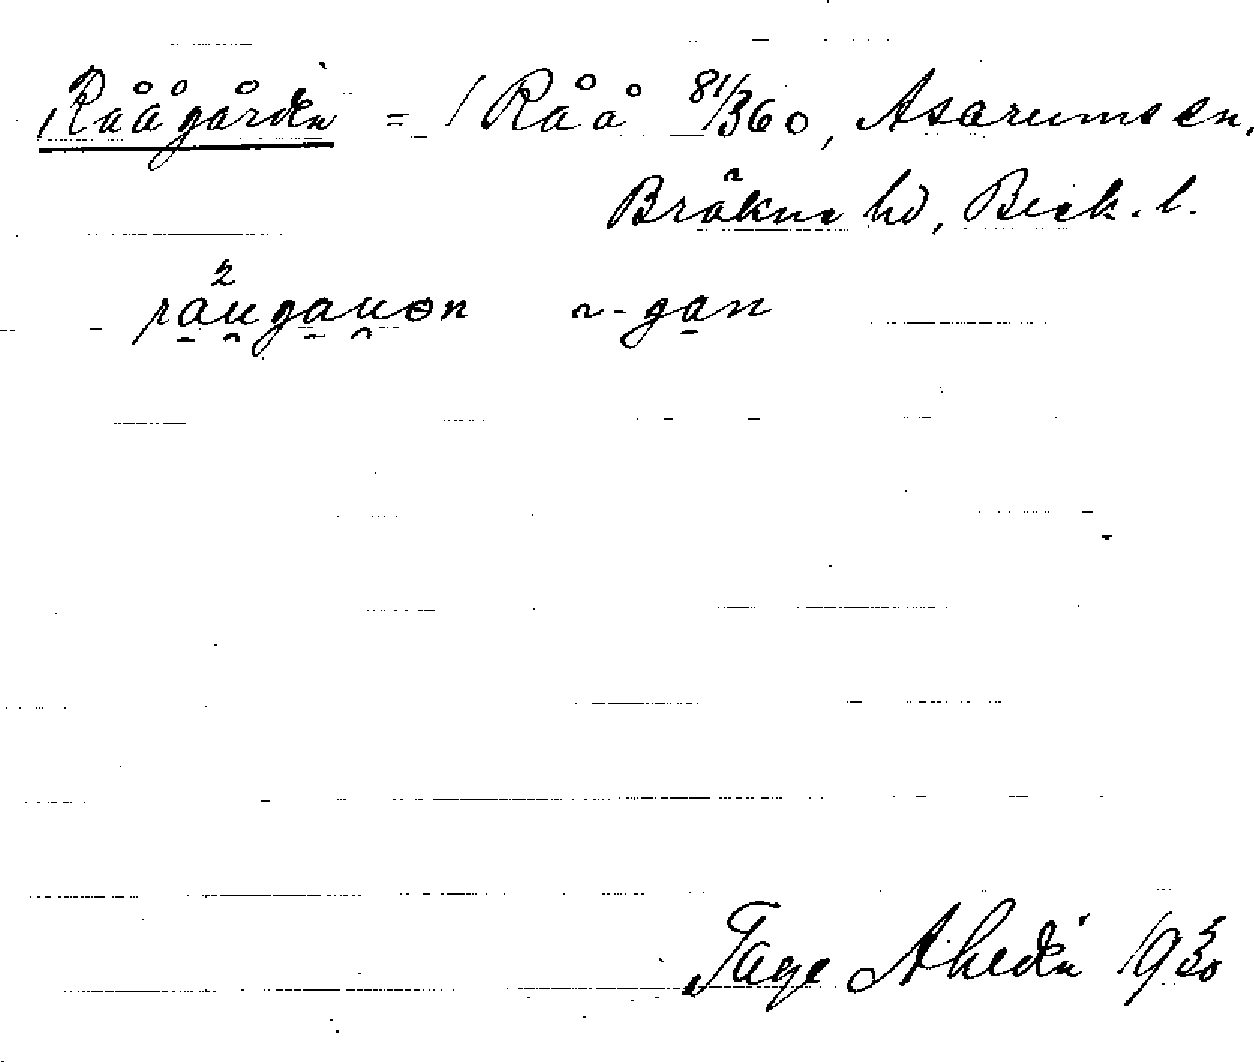 Råågården = 1 Råå 81/360, Asarums sn,
Bräkne hd, Blek. l.
råugauən ~-gan
Tage Ahldén 1930